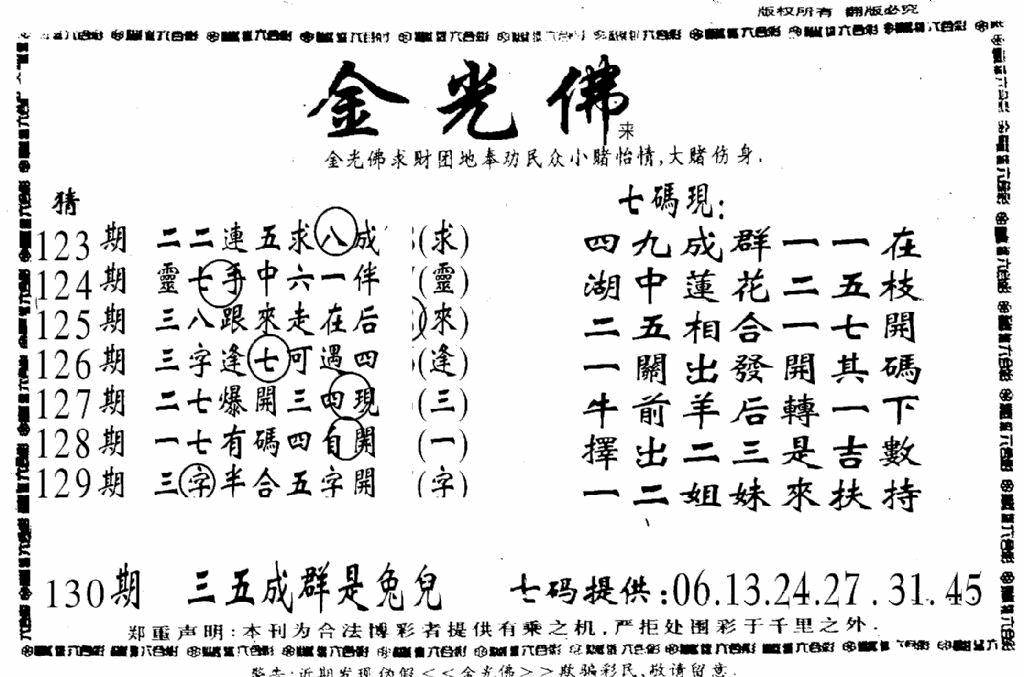 版权所有 翻版必究
金光佛
来
金光佛求财团地奉功民众小赌怡情,大赌伤身.
猜
123期 二二連五求八成 (求)
124期 靈七手中六一伴 (靈)
125期 三八跟來走在后 (來)
126期 三字逢七可遇四 (逢)
127期 二七爆開三四現 (三)
128期 一七有碼四有開 (一)
129期 三字半合五字開 (字)
七碼現:
四九成群一一在
湖中蓮花二五枝
二五相合一七開
一關出發開其碼
牛前羊后轉一下
擇出二三是吉數
一二姐妹來扶持
130期 三五成群是兔兒 七码提供:06.13.24.27.31.45
郑重声明:本刊为合法博彩者提供有乘之机,严拒处围彩于千里之外.
警告:近期发现伪假<<金光佛>>欺骗彩民,敬请留意.